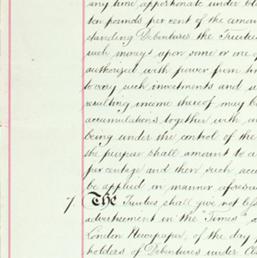 any time apportionate under
ten pounds per cent of the amoun
standing Debentures the Trustees
such moneys upon some or one of
authorized with power from tim
to vary such investments and
resulting income thereof may b
accumulations together with
being under the control of the
the purpose shall amount to a
percentage and then such acc
be applied in manner aforesai
7 The Trustees shall give not les
advertisement in the "Times" a
London Newspaper, of the day
holders of Debentures under